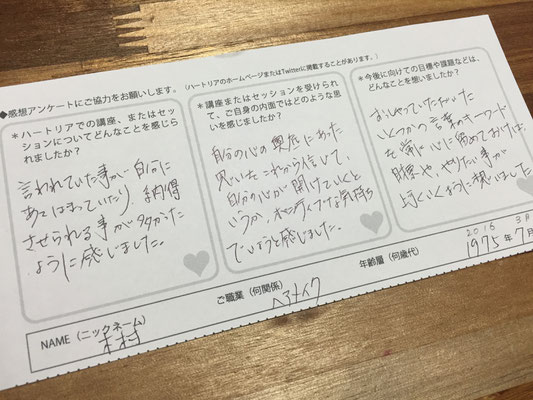 ◆感想アンケートにご協力をお願いします。(ハートリアのホームページまたはTwitterに掲載することがあります。)
＊ハートリアでの講座、またはセッションについてどんなことを感じられましたか？
言われていた事が自分に
あてはまっていたり、納得
させられる事が多かった
ように感じました。
＊講座またはセッションを受けられて、ご自身の内面ではどのような思いを感じましたか？
自分の心の奥底にあった
思いをこれから信じて、
自分の心が開けていくと
いうか、ポジティブな気持ち
でいようと感じました。
＊今後に向けての目標や課題などは、どんなことを想いましたか？
おしゃっていただいた
いくつかの言葉のキーワード
を常に心に留めておけば、
目標や、やりたい事が
上手くいくように思いました
NAME（ニックネーム）
木村
ご職業（何関係）
ヘアメイク
年齢層（何歳代）
2016 3月
1975年7月